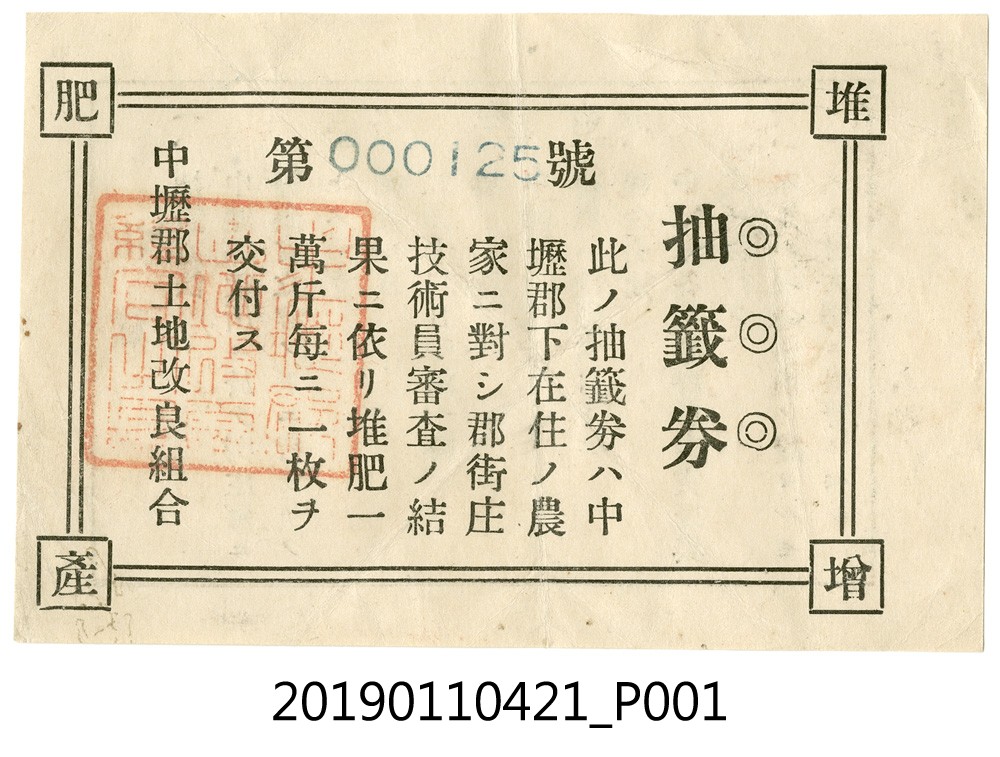 堆
肥
增
產
抽籤券
第000125號
此ノ抽籤券ハ中
壢郡下在住ノ農
家ニ對シ郡街庄
技術員審査ノ結
果ニ依リ堆肥一
萬斤每ニ一枚ヲ
交付ス
中壢郡土地改良組合
20190110421_P001